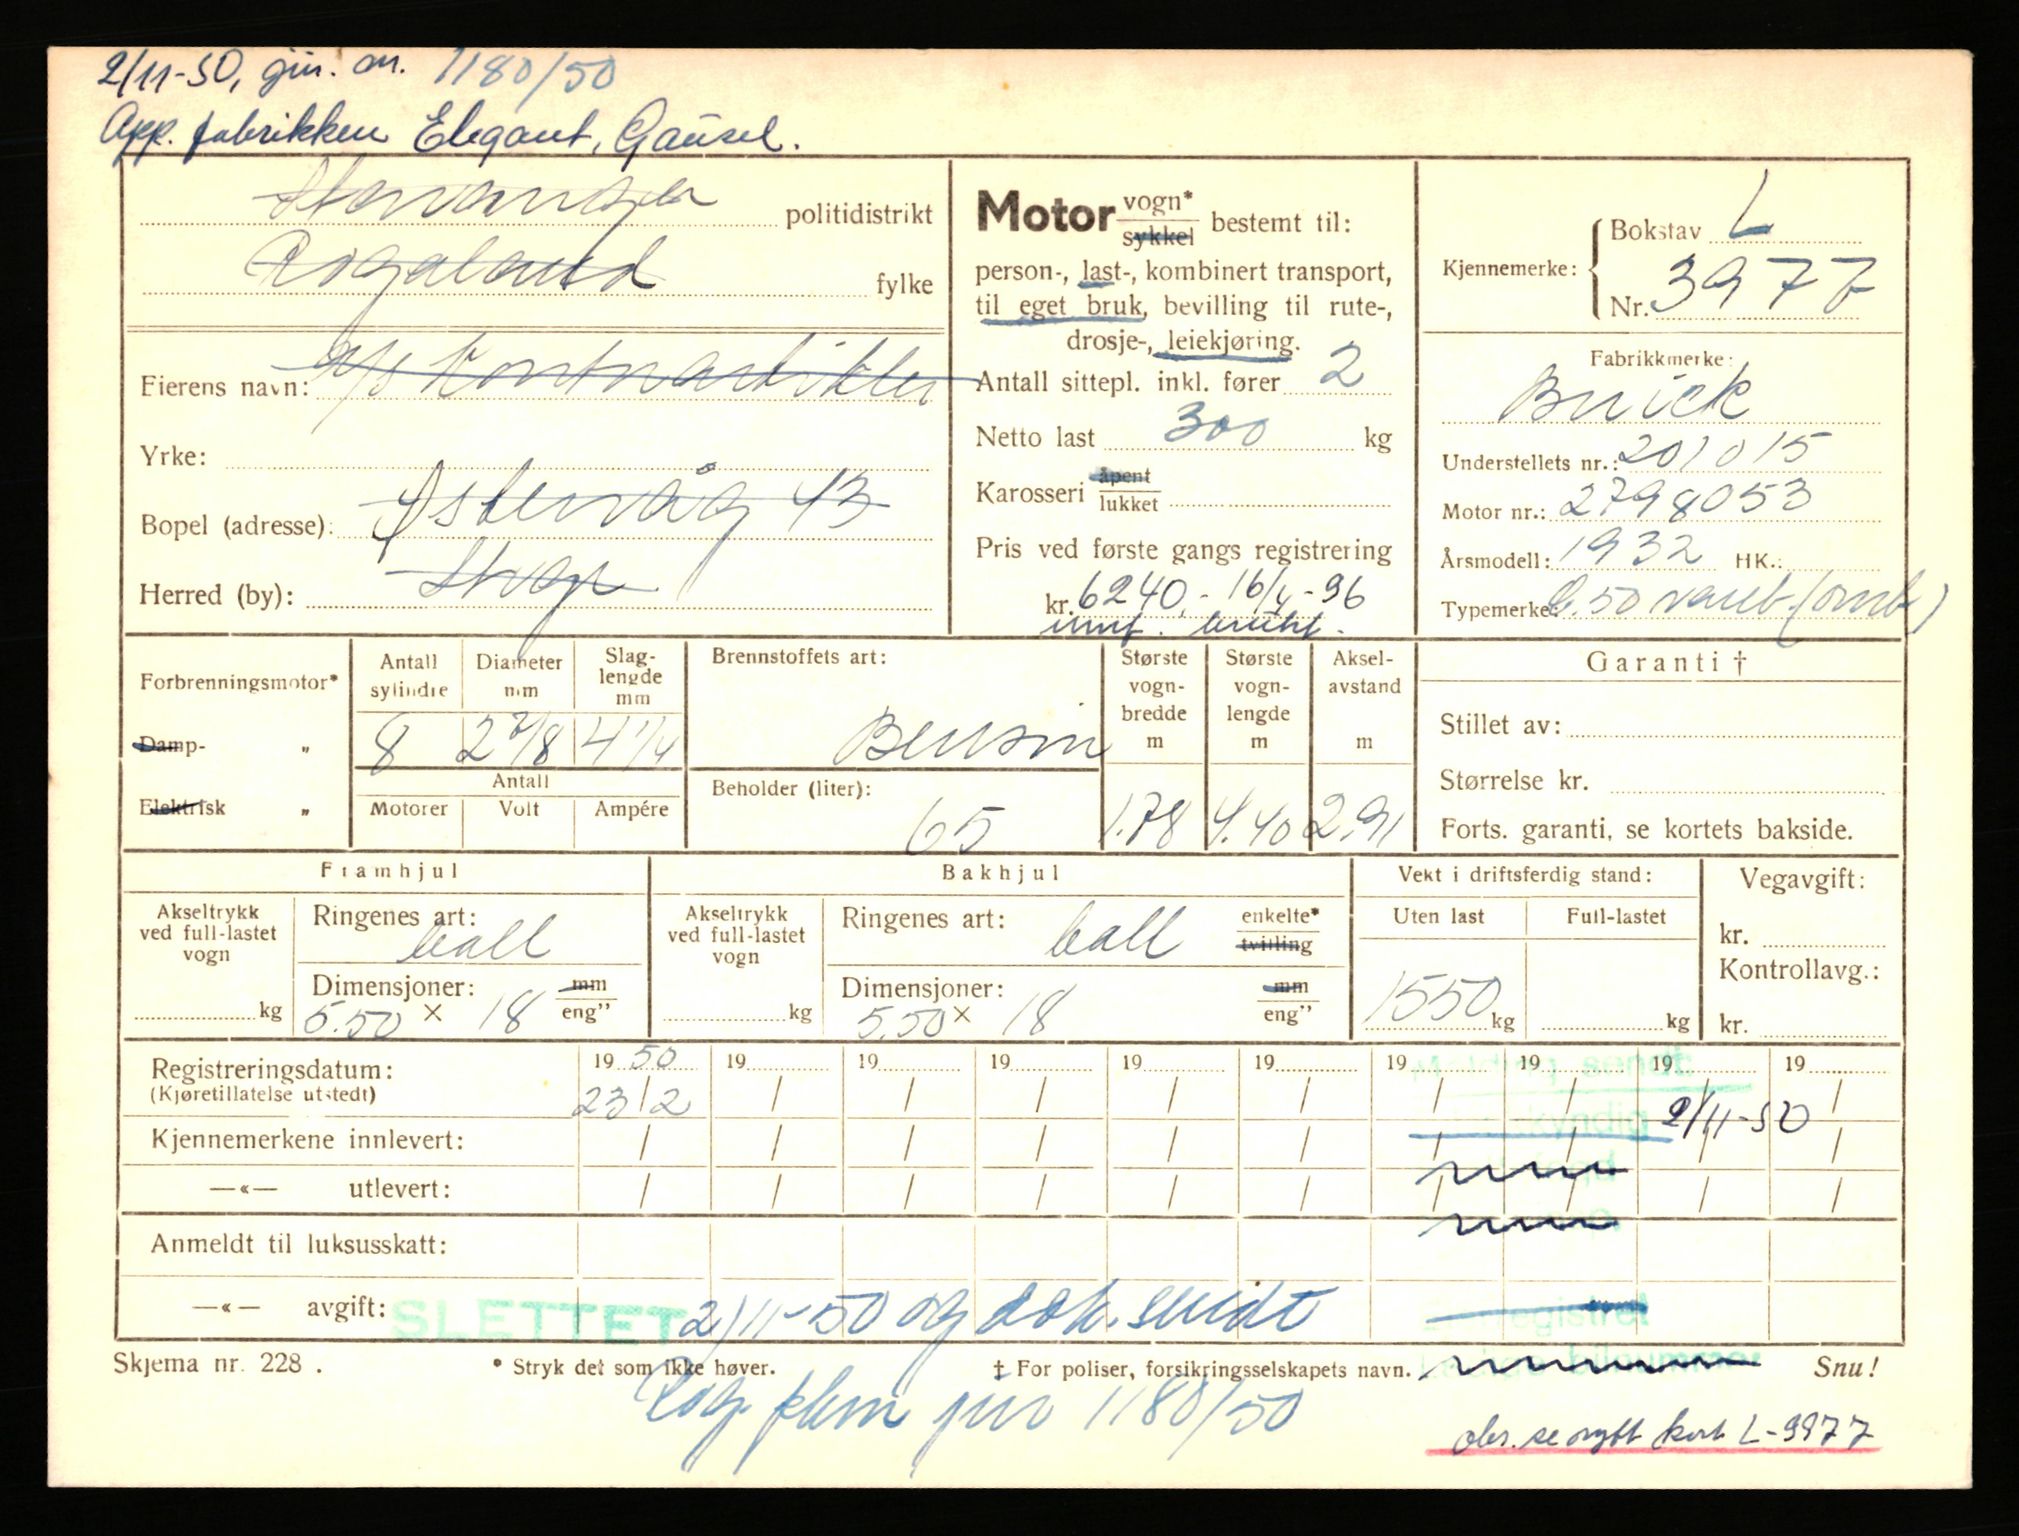 2/11-50, jnr. an. 1180/50
App. fabrikken Elegant, Gausel.
Stavanger politidistrikt
Rogaland fylke
Eierens navn: A/s Kontorartikler
Yrke:
Bopel (adresse): Østervåg 43
Herred (by): Stvgr
Motor vogn* / sykkel bestemt til:
person-, last-, kombinert transport,
til eget bruk, bevilling til rute-,
drosje-, leiekjøring.
Antall sittepl. inkl. fører 2
Netto last 300 kg
Karosseri åpent / lukket
Pris ved første gangs registrering
kr. 6240.- 16/4-36
innf. brukt.
Kjennemerke: Bokstav L
Nr. 3977
Fabrikkmerke:
Buick
Understellets nr.: 201015
Motor nr.: 2798053
Årsmodell: 1932 HK.:
Typemerke: 50 vareb. (omb)
Forbrenningsmotor*
Damp- „
Elektrisk „
Antall sylindre 8
Diameter mm 2 7/8
Slaglengde mm 4 1/4
Antall
Motorer Volt Ampére
Brennstoffets art:
Bensin
Beholder (liter):
65
Største vognbredde m 1.78
Største vognlengde m 4.40
Akselavstand m 2.91
Garanti †
Stillet av:
Størrelse kr.
Forts. garanti, se kortets bakside.
Framhjul
Akseltrykk ved full-lastet vogn kg
Ringenes art: ball
Dimensjoner: mm / eng”
5.50 x 18
Bakhjul
Akseltrykk ved full-lastet vogn kg
Ringenes art: ball enkelte* / tvilling
Dimensjoner: mm / eng”
5.50 x 18
Vekt i driftsferdig stand:
Uten last Full-lastet
1550 kg kg
Vegavgift:
kr.
Kontrollavg.:
kr.
Registreringsdatum: 19 50 19 19 19 19 19 19 19 19 19
(Kjøretillatelse utstedt) 23/2 / / / / / / / / /
2/11-50
Kjennemerkene innlevert: / / / / / / / / / /
—«— utlevert: / / / / / / / / / /
Anmeldt til luksusskatt:
—«— avgift: SLETTET 2/11-50 og dok. sendt
Skjema nr. 228 . * Stryk det som ikke høver. † For poliser, forsikringsselskapets navn. Snu!
Rog. pkm jnr 1180/50
obs. se nytt kort L-3977